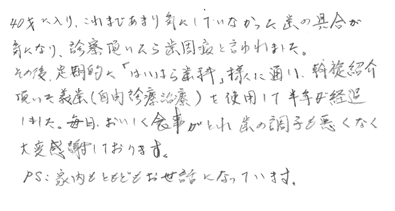 40才に入り、これまであまり気にしていなかった歯の具合が
気になり、診察頂いたら歯周病と言われました。
その後、定期的に「はいはら歯科」様に通い、斡旋紹介
頂いた義歯(自由診療治療)を使用して半年が経過
しました。毎日、おいしく食事がとれ歯の調子も悪くなく
大変感謝しております。
PS:家内もともどもお世話になっています。